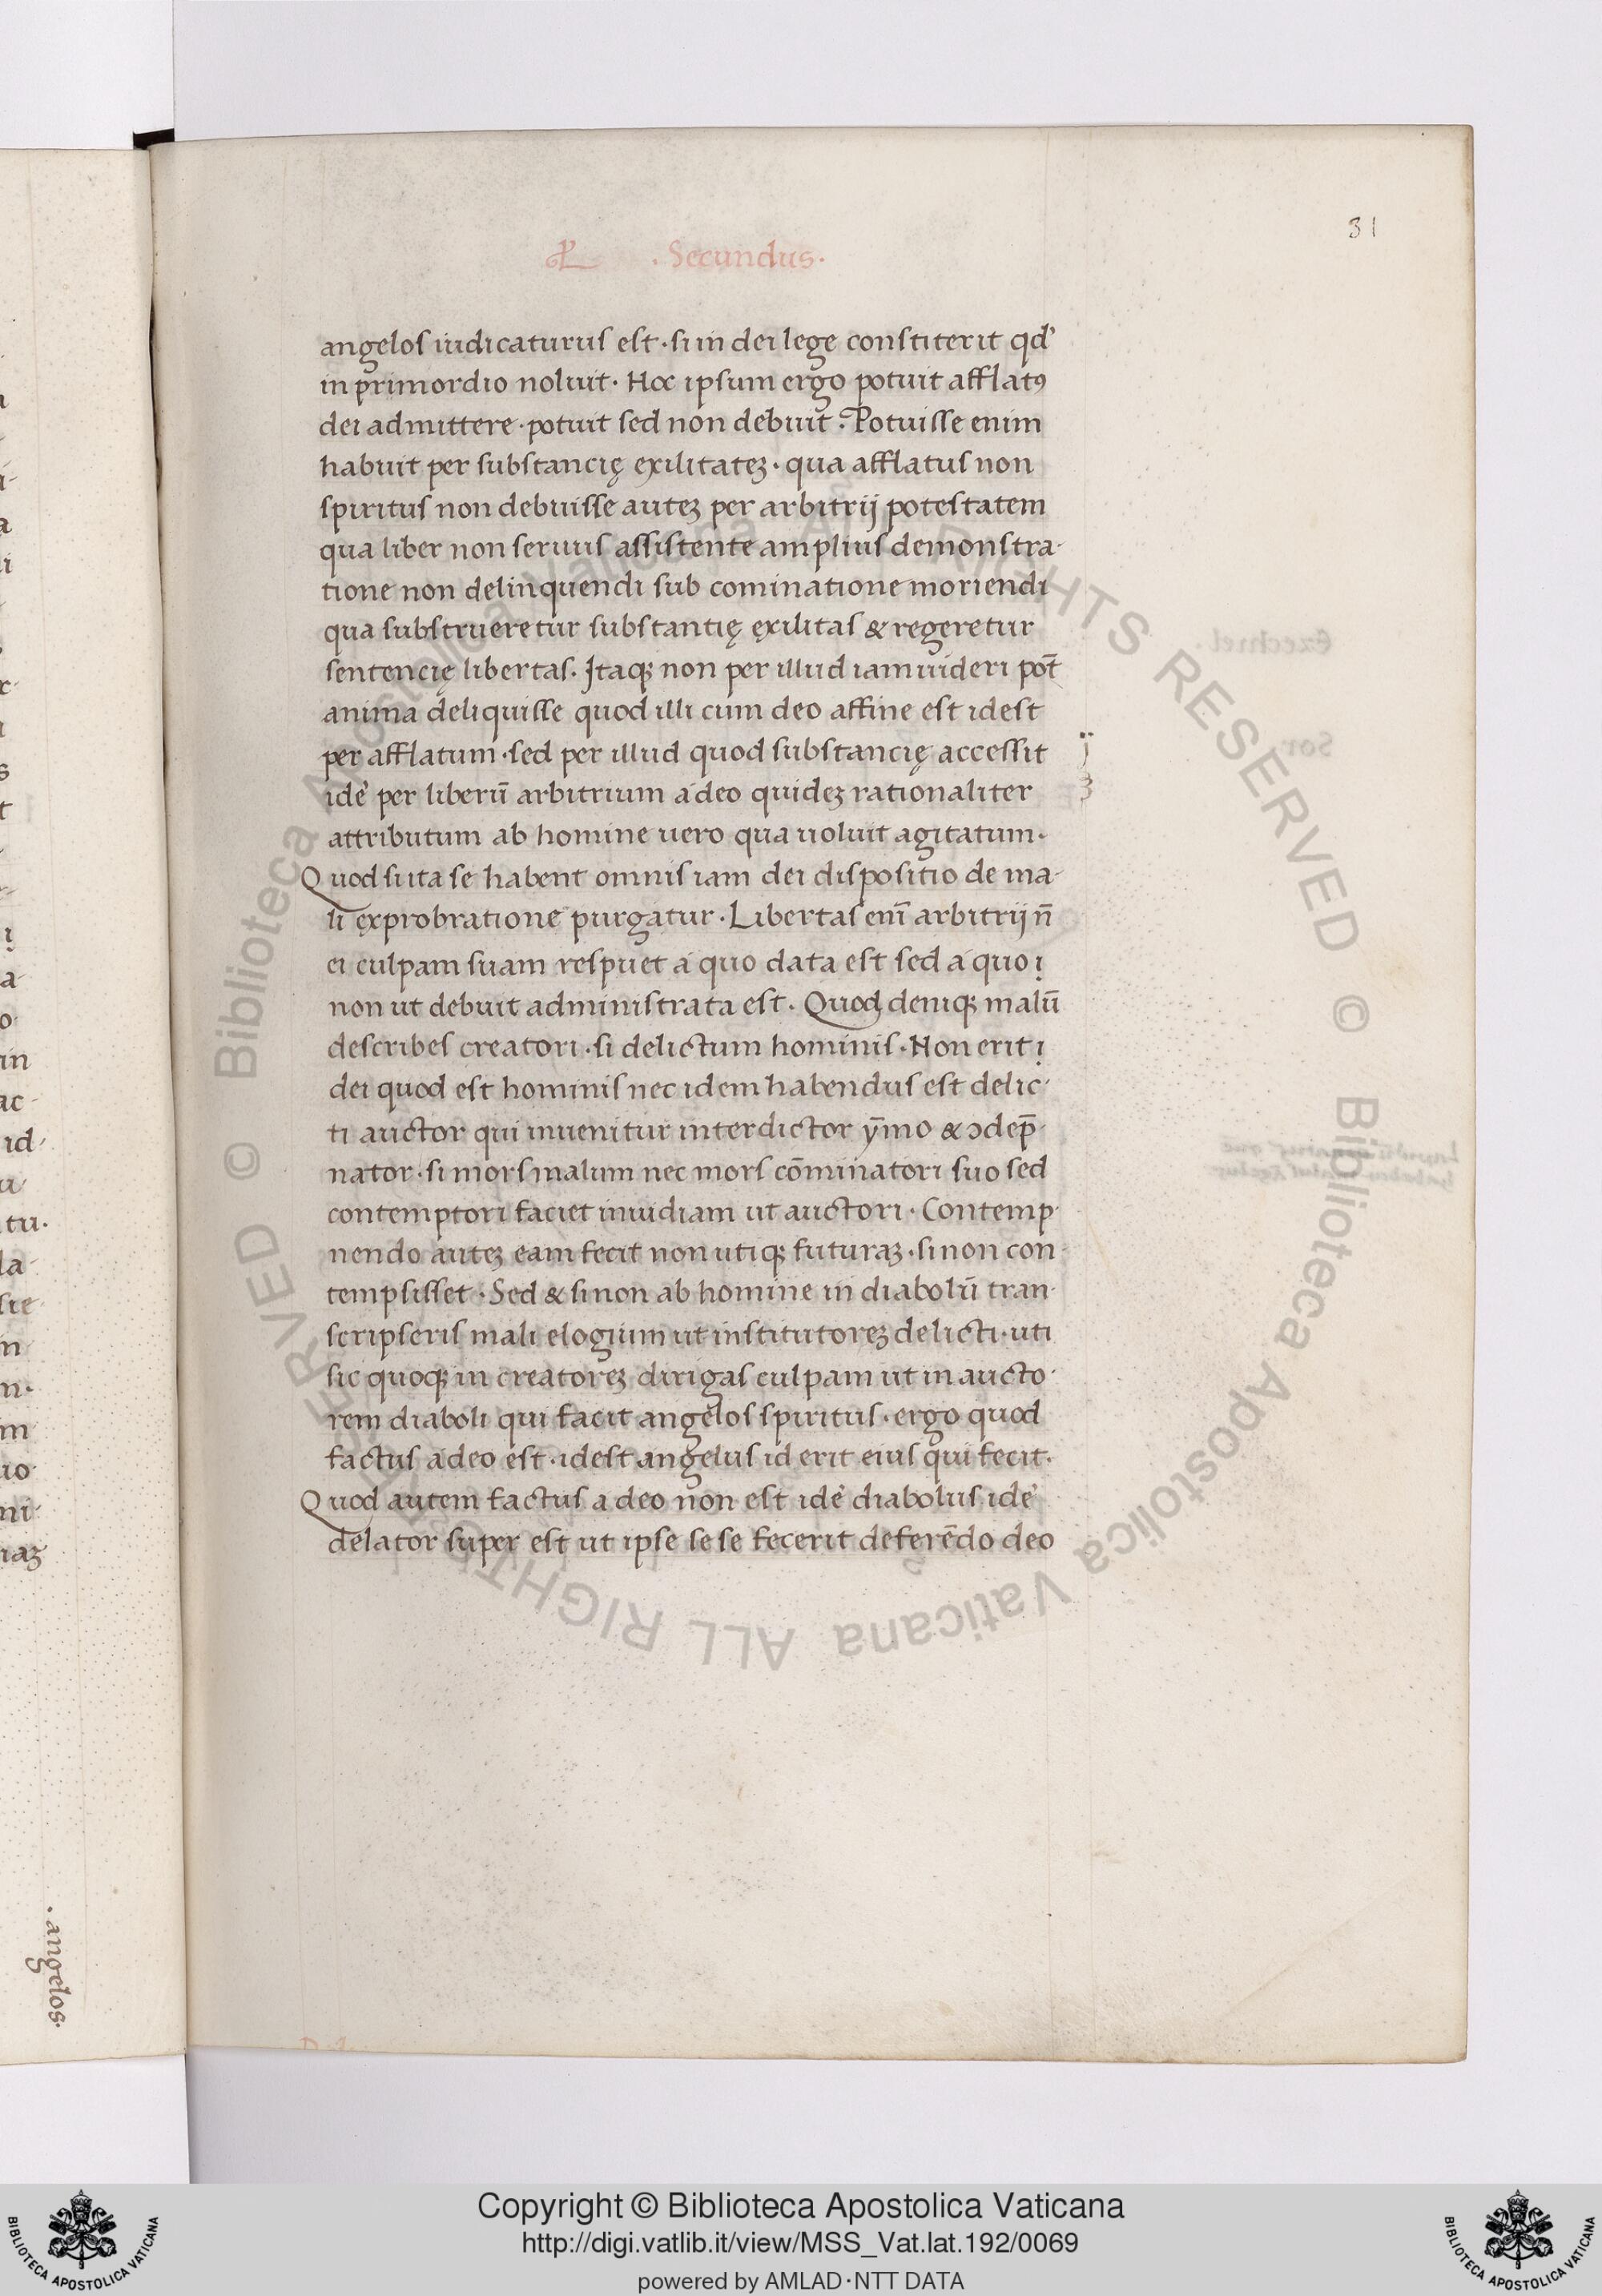 31
. Secundus.
angelos iudicaturus est · si in dei lege constiterit qd'
in primordio noluit · Hoc ipsum ergo potuit afflatꝰ
dei admittere · potuit sed non debuit · Potuisse enim
habuit per substancię exilitatēꝫ · qua afflatus non
spiritus non debuisse auteꝫ per arbitrij potestatem
qua liber non seruus assistente amplius demonstra-
tione non delinquendi sub cominatione moriendi
qua substrueretur substantię ęxilitas & regeretur
sentencię libertas. Itaqꝫ non per illud iam uideri pot̄
anima deliquisse quod illi cum deo affine est idest
per afflatum · sed per illud quod substancię accessit
ide' per liberū arbitrium a deo quideꝫ rationaliter
attributum ab homine uero qua uoluit agitatum.
Quod si ita se habent omnis iam dei dispositio de ma-
li ęxprobratione purgatur · Libertas enī arbitrij n̄
ei culpam suam respuet a quo data est sed a quo ị
non ut debuit administrata est · Quod deniqꝫ malū
describes creatori · si delictum hominis · Non erit ị
dei quod est hominis nec idem habendus est delic-
ti auctor qui inuenitur interdictor ȳmo & ɔdep̄-
nator · si mors malum nec mors cōminatori suo sed
contemptori faciet inuidiam ut auctori · Contemp-
nendo auteꝫ eam fecit non utiqꝫ futuraꝫ · si non con-
tempsisset · Sed & si non ab homine in diabolū tran-
scripseris mali elogium ut institutoreꝫ delicti · uti
sic quoqꝫ in creatoreꝫ dirigas culpam ut in aucto-
rem diaboli qui facit angelos spiritus · ergo quod
factus a deo est · idest angelus id erit eius qui fecit.
Quod autem factus a deo non est ide' diabolus ide'
delator super est ut ipse se se fecerit deferēdo deo
. angelos.
Copyright © Biblioteca Apostolica Vaticana
http://digi.vatlib.it/view/MSS_Vat.lat.192/0069
powered by AMLAD·NTT DATA
BIBLIOTECA APOSTOLICA VATICANA
BIBLIOTECA APOSTOLICA VATICANA
© Biblioteca Apostolica Vaticana ALL RIGHTS RESERVED © Biblioteca Apostolica Vaticana ALL RIGHTS RESERVED